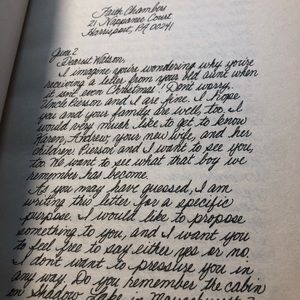 Faith Chambers
21 Nappanee Court
Harrisport, PA 00241
June 2
Dearest Watson,
I imagine you're wondering why you're
receiving a letter from your old aunt when
it isn't even Christmas! Don't worry,
Uncle Pierson and I are fine. I hope
you and your family are well, too. I
would very much like to get to know
Karen, Andrew, your new wife, and her
children. Pierson and I want to see you,
too. We want to see what that boy we
remember has become.
As you may have guessed, I am
writing this letter for a specific
purpose. I would like to propose
something to you, and I want you
to feel free to say either yes or no.
I don't want to pressure you in
any way. Do you remember the cabin
on Shadow Lake in